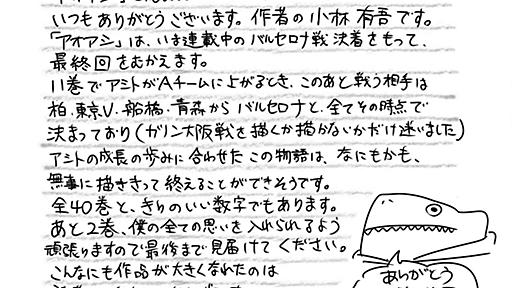 いつもありがとうございます。作者の小林有吾です。
「アオアシ」は、いま連載中のバルセロナ戦決着をもって、
最終回をむかえます。
11巻でアシトがAチームに上がるとき、このあと戦う相手は
柏・東京V・船橋・青森からバルセロナと、全てその時点で
決まっており(ガンバ大阪戦を描くか描かないかだけ迷いました)
アシトの成長の歩みに合わせたこの物語は、なにもかも、
無事に描ききって終えることができそうです。
全40巻と、きりのいい数字でもあります。
あと2巻、僕の全ての思いを入れられるよう
頑張りますので最後まで見届けてください。
こんなにも作品が大きくなれたのは
ありがとう